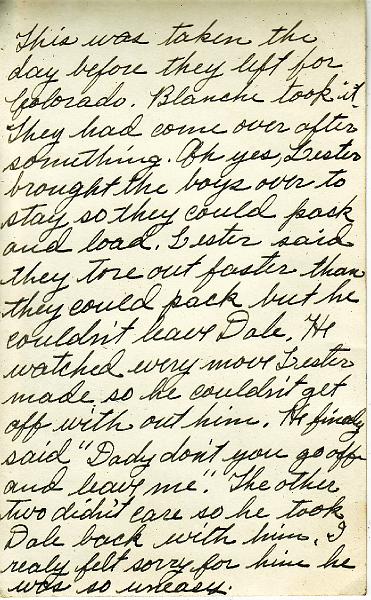 This was taken the
day before they left for
Colorado. Blanche took it.
They had come over after
something. Oh yes, Lester
brought the boys over to
stay so they could pack
and load. Lester said
they tore out faster than
they could pack but he
couldn't leave Dale. He
watched every move Lester
made so he couldn't get
off with out him. He finaly
said "Dady don't you go off
and leave me". The other
two didn't care so he took
Dale back with him. I
realy felt sorry for him he
was so uneasy.